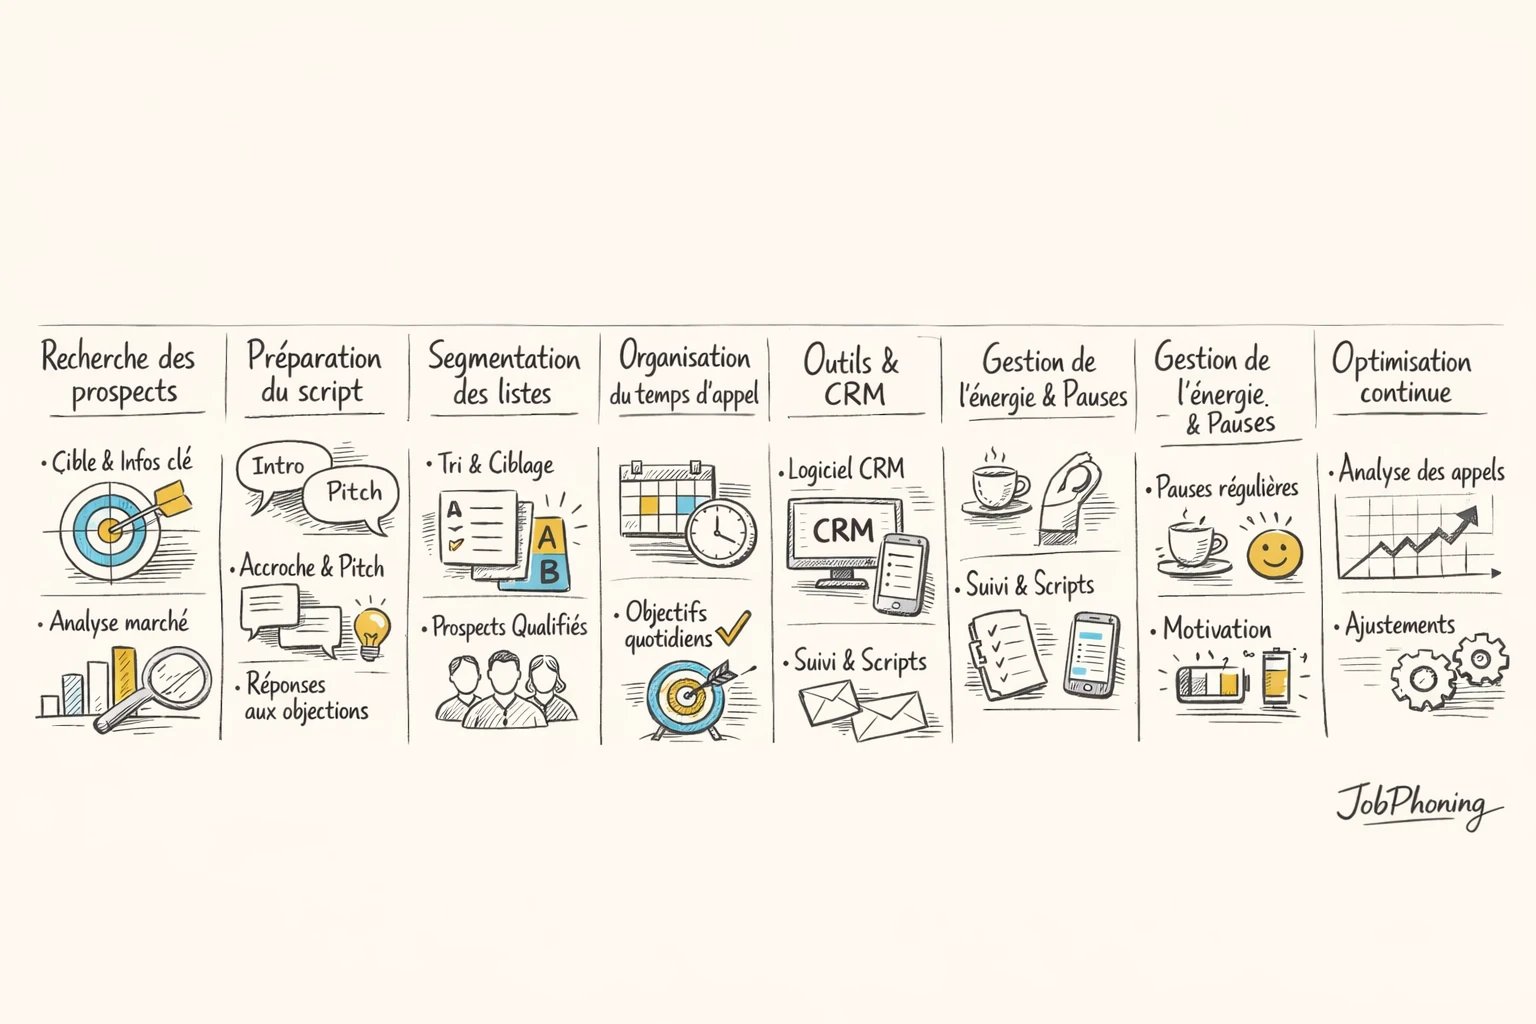 Recherche des
prospects
• Çible & Infos clé
• Analyse marché
Préparation
du script
Intro
Pitch
• Accroche & Pitch
• Réponses
aux objections
Segmentation
des listes
• Tri & Ciblage
A
A
B
• Prospects Qualifiés
Organisation
du temps d'appel
• Objectifs
quotidiens
Outils &
CRM
• Logiciel CRM
CRM
• Suivi & Scripts
Gestion de
l'énergie & Pauses
• Suivi & Scripts
Gestion de
l'énergie.
& Pauses
• Pauses régulières
• Motivation
Optimisation
continue
• Analyse des appels
• Ajustements
JobPhoning